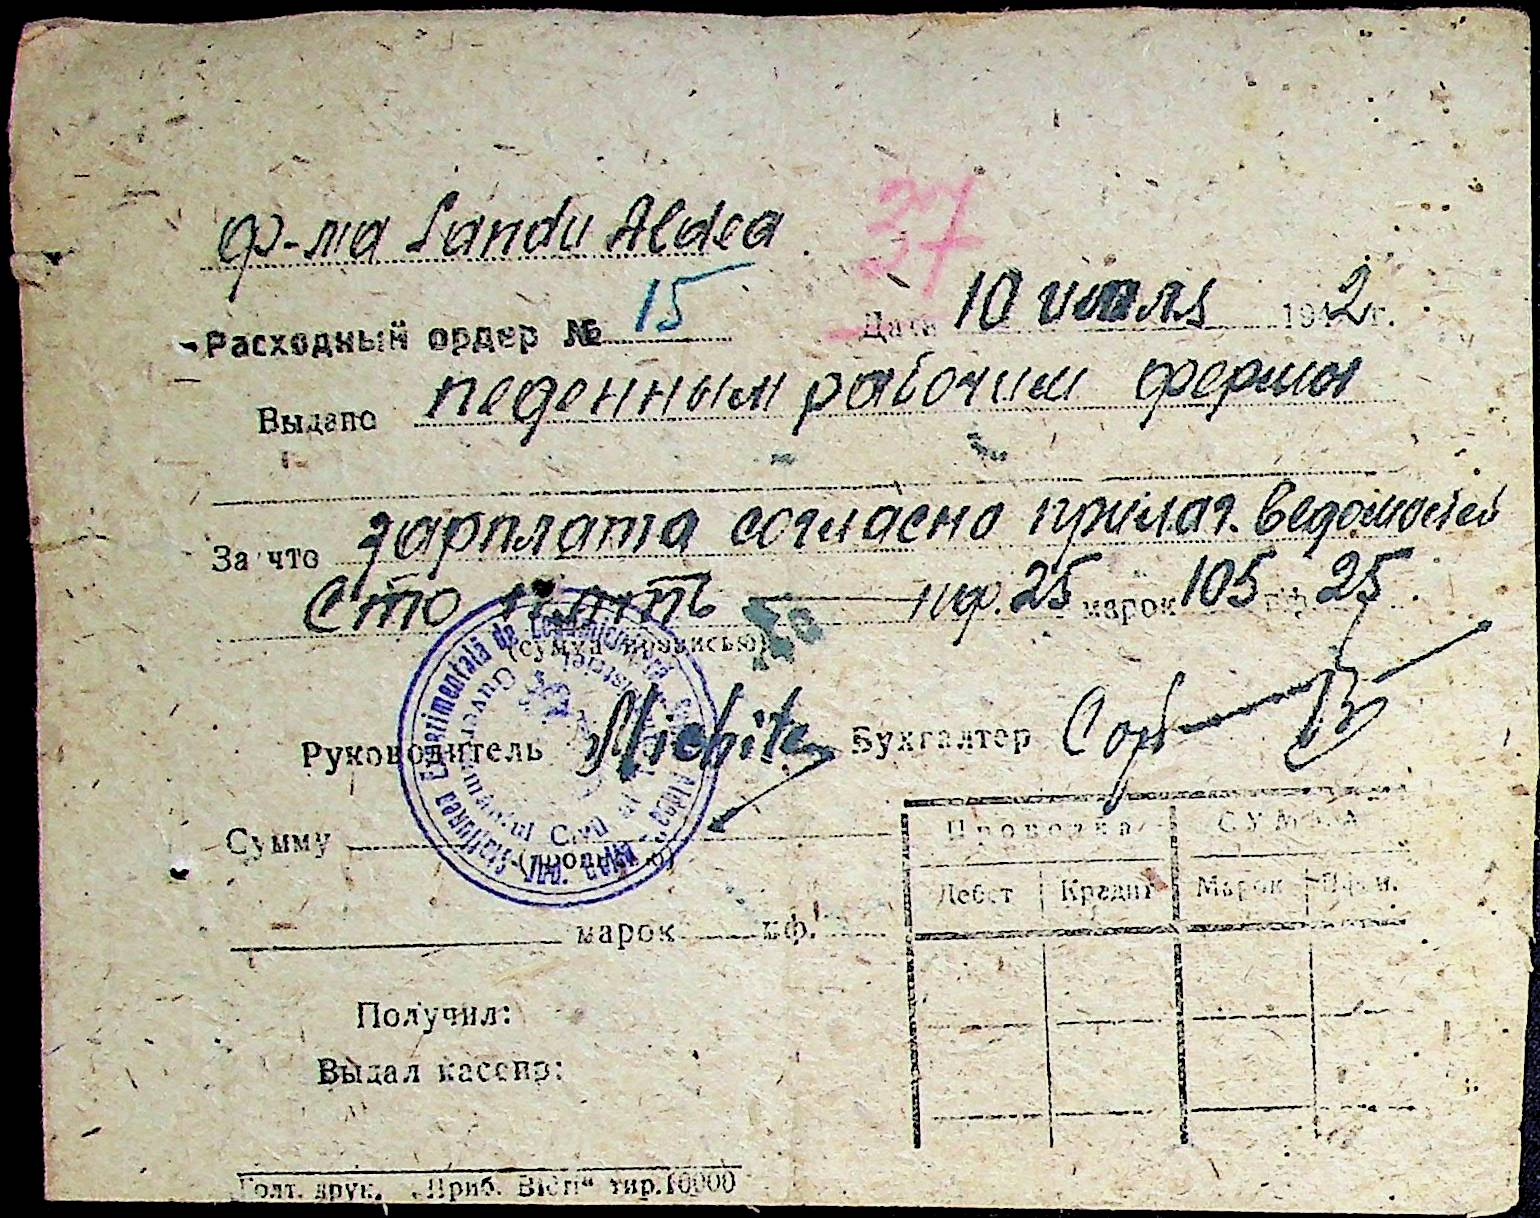 ф-ма Sandu Aldea
37
Расходный ордер № 15 Дата 10 июля 1942 г.
Выдано педенным рабочим фермы
За что зарплата согласно прилаг. ведомостей
Сто пять пф. 25 марок 105 пф. 25
(сумма прописью)
Stațiunea Experimentală de Legumicultură Aldea
Guvernământul Civil al
Руководитель Бухгалтер
Сумму
(прописью)
марок пф.
Проводка СУММА
Дебет Кредит Марок Пфен.
Получил:
Выдал кассир:
Голт. друк. „Приб. Вісті“ тир.10000